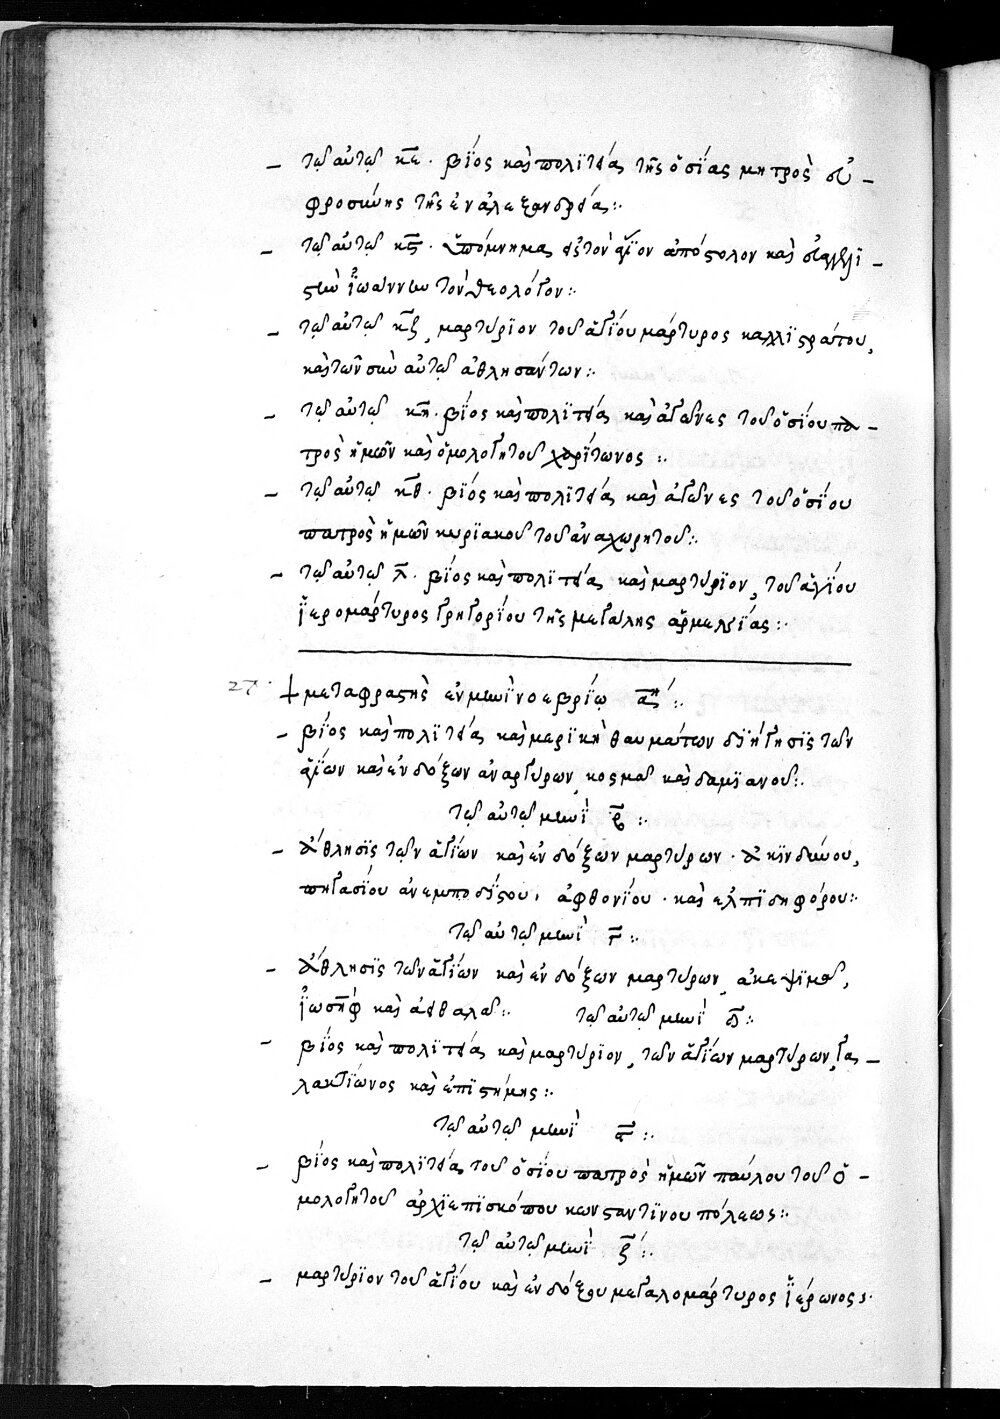 – τῷ αὐτῷ κε̅. βίος καὶ πολιτεία τῆς ὁσίας μητρὸς εὐ –
φροσύνης τῆς ἐν ἀλεξανδρεία:·
– τῷ αὐτῷ κς̅. ὑπόμνημα εἰς τὸν ἅγιον ἀπόστολον καὶ εὐαγγελϊ –
στὴν ἰωάννην τὸν θεολόγον:·
– τῷ αὐτῷ κζ̅, μαρτύρϊον τοῦ ἁγίου μάρτυρος καλλϊστράτου,
καὶ τῶν σὺν αὐτῷ ἀθλησάντων:·
– τῷ αὐτῷ κη̅. βίος καὶ πολϊτεία καὶ ἀγῶνες τοῦ ὁσίου πα –
τρὸς ἡμῶν καὶ ὁμολογητοῦ χαρίτωνος:·
– τῷ αὐτῷ κθ̅. βϊός καὶ πολϊτεία καὶ ἀγῶνες τοῦ ὁσίου
πατρὸς ἡμῶν κυρϊακοῦ τοῦ ἀναχωρητοῦ:·
– τῷ αὐτῷ λ̅. βίος καὶ πολϊτεία καὶ μαρτύρϊον, τοῦ ἁγίου
ἱερομάρτυρος γρηγορίου τῆς μεγάλης ἀρμενίας:·
27· † μεταφραστὴς ἐν μηνὶ νοεβρίῳ α̅η:·
– βίος καὶ πολϊτεία καὶ μερϊκὴ θαυμάτων δϊήγησϊς τῶν
ἁγίων καὶ ἐνδόξων ἀναργύρων, κοσμᾶ καὶ δαμϊανοῦ:·
τῷ αὐτῷ μηνὶ β̅:·
– ἄθλησϊς τῶν ἁγίων καὶ ἐνδόξων μαρτύρων. ἀκϊνδύνου,
πηγασίου ἀνεμποδίστου, ἀφθονίου. καὶ ἐλπϊδηφόρου:·
τῷ αὐτῷ μηνὶ γ̅:·
– ἄθλησϊς τῶν ἁγίων καὶ ἐνδόξων μαρτύρων, ἀκεψϊμᾶ,
ἰωσὴφ καὶ ἀειθαλᾶ:· τῷ αὐτῷ μηνὶ δ̅:·
– βίος καὶ πολϊτεία καὶ μαρτύρϊον, τῶν ἁγίων μαρτύρων, γα –
λακτϊωνος καὶ ἐπϊστήμης:·
τῷ αὐτῷ μηνὶ ε̅:·
– βίος καὶ πολϊτεία τοῦ ὁσίου πατρὸς ἡμῶν παύλου τοῦ ὁ –
μολογητοῦ ἀρχϊεπϊσκόπου κωνσταντϊνουπόλεως:·
τῷ αὐτῷ μηνὶ ζ̅:·
– μαρτύρϊον τοῦ ἁγίου καὶ ἐνδόξου μεγαλομάρτυρος ἱέρωνος:·